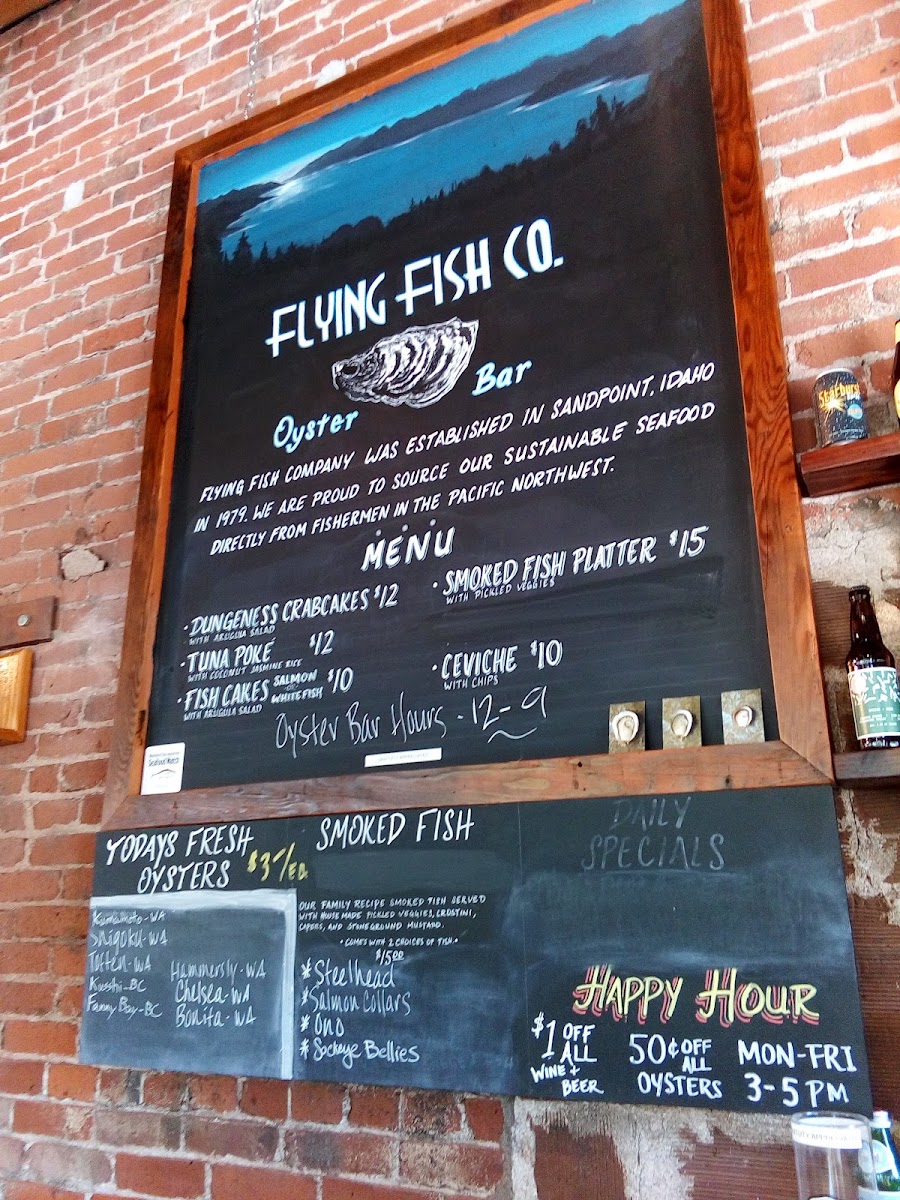 FLYING FISH CO.
Oyster Bar
FLYING FISH COMPANY WAS ESTABLISHED IN SANDPOINT, IDAHO
IN 1979. WE ARE PROUD TO SOURCE OUR SUSTAINABLE SEAFOOD
DIRECTLY FROM FISHERMEN IN THE PACIFIC NORTHWEST.
MENU
· DUNGENESS CRABCAKES $12
WITH ARUGULA SALAD
· TUNA POKÉ $12
WITH COCONUT JASMINE RICE
· FISH CAKES SALMON OR WHITEFISH $10
WITH ARUGULA SALAD
· SMOKED FISH PLATTER $15
WITH PICKLED VEGGIES
· CEVICHE $10
WITH CHIPS
Oyster Bar Hours - 12-9
Seafood Watch
TODAYS FRESH
OYSTERS $3/EA.
Kumamoto-WA
Shigoku-WA
Totten-WA
Kusshi-BC
Fanny Bay-BC
Hammersly-WA
Chelsea-WA
Bonita-WA
SMOKED FISH
OUR FAMILY RECIPE SMOKED FISH SERVED
WITH HOUSE MADE PICKLED VEGGIES, CROSTINI,
CAPERS, AND STONEGROUND MUSTARD.
• COMES WITH 2 CHOICES OF FISH. •
$15.00
* Steelhead
* Salmon Collars
* Ono
* Sockeye Bellies
DAILY
SPECIALS
HAPPY HOUR
$1 OFF
ALL
WINE +
BEER
50¢ OFF
ALL
OYSTERS
MON-FRI
3-5 PM
Starburst